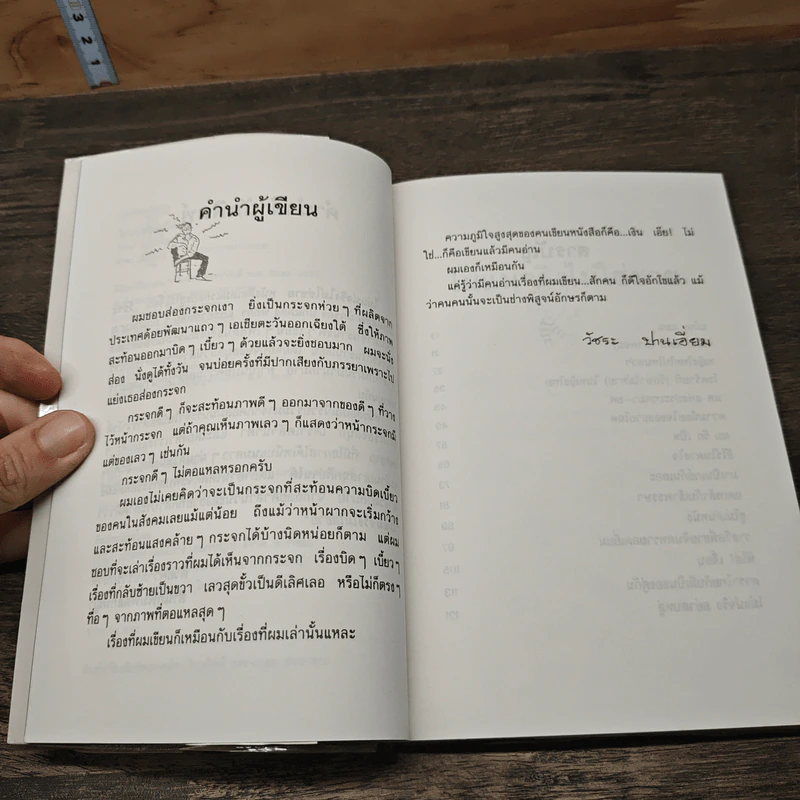 3
2
1
คำนำผู้เขียน
ผมชอบส่องกระจกเงา ยิ่งเป็นกระจกห่วยๆ ที่ผลิตจาก
ประเทศด้อยพัฒนาแถวๆ เอเชียตะวันออกเฉียงใต้ ซึ่งให้ภาพ
สะท้อนออกมาบิดๆ เบี้ยวๆ ด้วยแล้วจะยิ่งชอบมาก ผมจะนั่ง
ส่อง นั่งดูได้ทั้งวัน จนบ่อยครั้งที่มีปากเสียงกับภรรยาเพราะไป
แย่งเธอส่องกระจก
กระจกดีๆ ก็จะสะท้อนภาพดีๆ ออกมาจากของดีๆ ที่วาง
ไว้หน้ากระจก แต่ถ้าคุณเห็นภาพเลวๆ ก็แสดงว่าหน้ากระจกมี
แต่ของเลวๆ เช่นกัน
กระจกดีๆ ไม่ตอแหลหรอกครับ
ผมเองไม่เคยคิดว่าจะเป็นกระจกที่สะท้อนความบิดเบี้ยว
ของคนในสังคมเลยแม้แต่น้อย ถึงแม้ว่าหน้าผากจะเริ่มกว้าง
และสะท้อนแสงคล้ายๆ กระจกได้บ้างนิดหน่อยก็ตาม แต่ผม
ชอบที่จะเล่าเรื่องราวที่ผมได้เห็นจากกระจก เรื่องบิดๆ เบี้ยวๆ
เรื่องที่กลับซ้ายเป็นขวา เลวสุดขั้วเป็นดีเลิศเลอ หรือไม่ก็ตรงๆ
ทื่อๆ จากภาพที่ตอแหลสุดๆ
เรื่องที่ผมเขียนก็เหมือนกับเรื่องที่ผมเล่านั้นแหละ
ความภูมิใจสูงสุดของคนเขียนหนังสือก็คือ...เงิน เอ๊ย! ไม่
ใช่...ก็คือเขียนแล้วมีคนอ่าน
ผมเองก็เหมือนกัน
แค่รู้ว่ามีคนอ่านเรื่องที่ผมเขียน...สักคน ก็ดีใจอักโขแล้ว แม้
ว่าคนคนนั้นจะเป็นช่างพิสูจน์อักษรก็ตาม
วัชระ ปานเอี่ยม